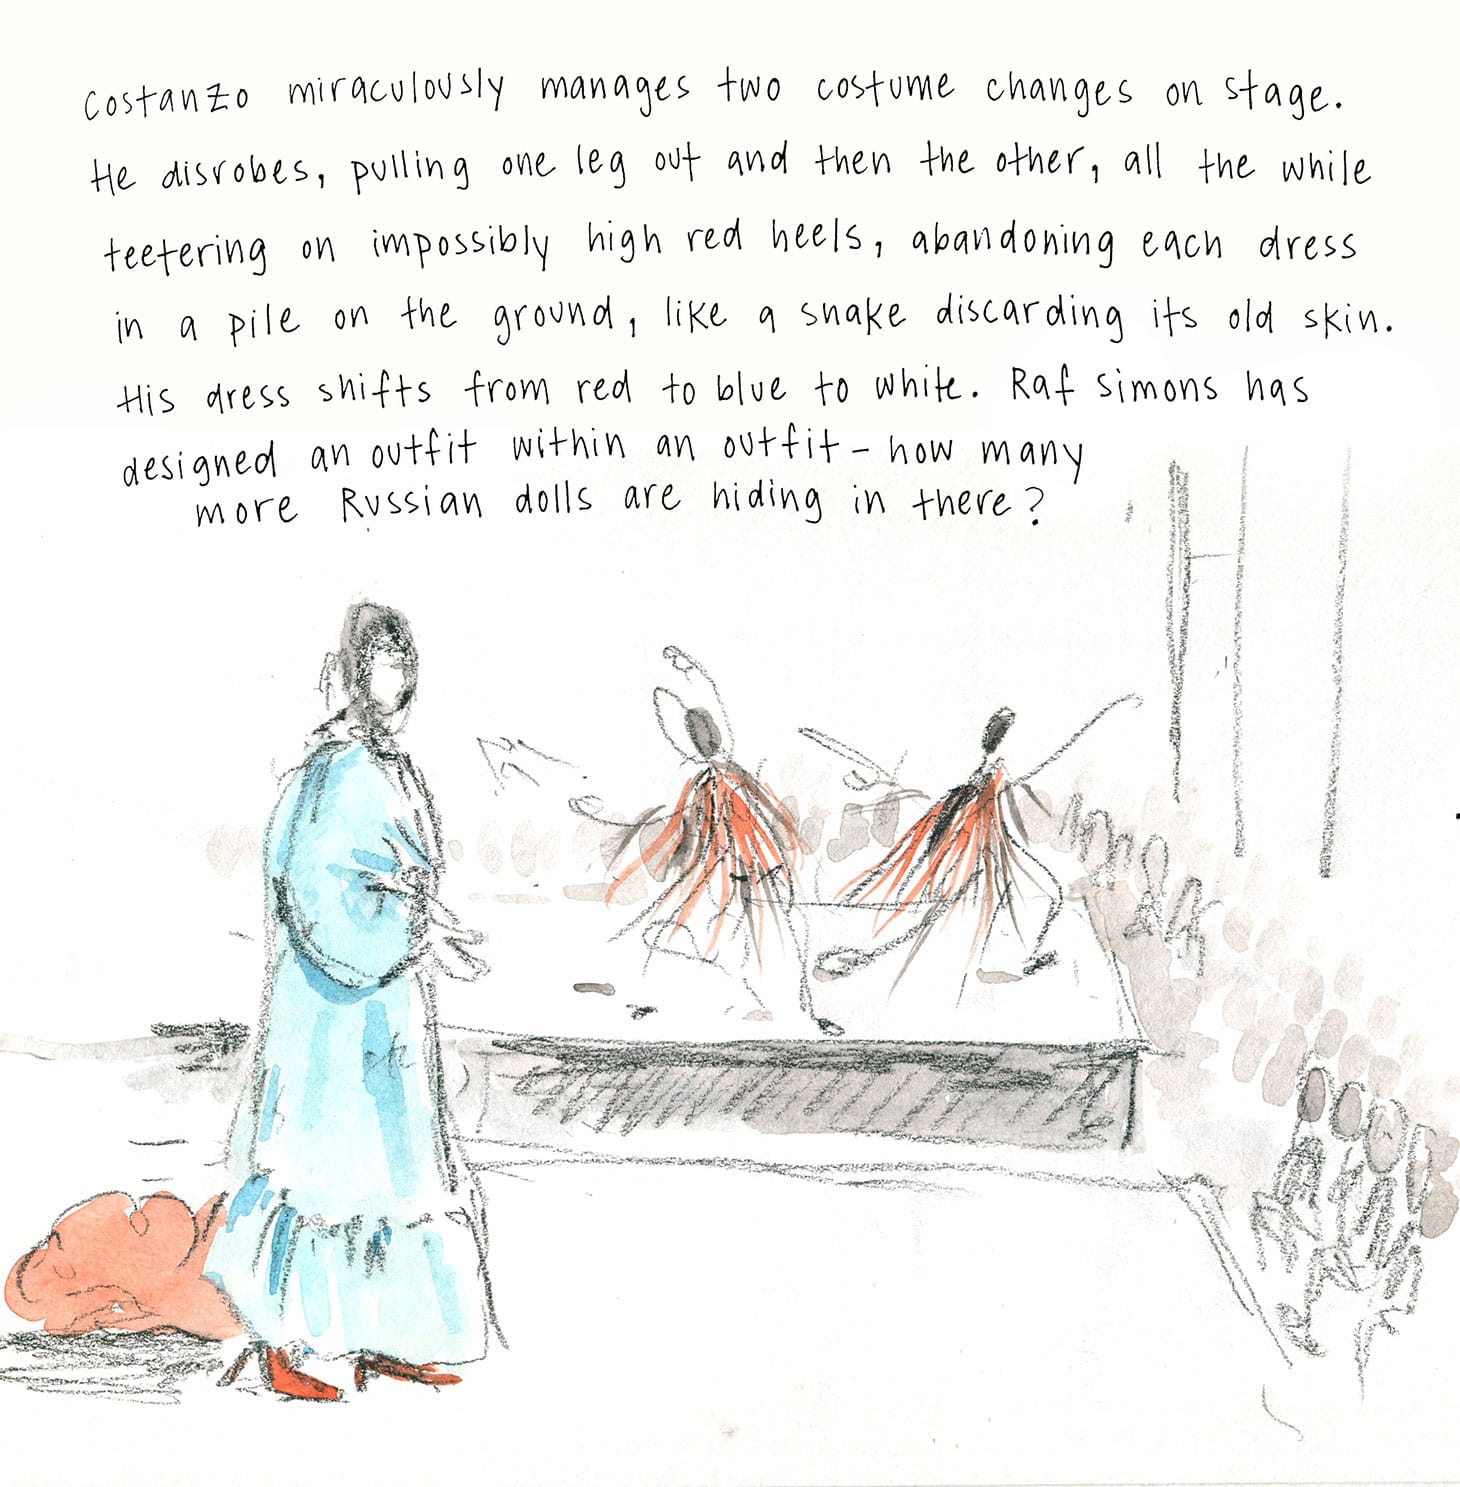 Costanzo miraculously manages two costume changes on stage.
He disrobes, pulling one leg out and then the other, all the while
teetering on impossibly high red heels, abandoning each dress
in a pile on the ground, like a snake discarding its old skin.
His dress shifts from red to blue to white. Raf Simons has
designed an outfit within an outfit – how many
more Russian dolls are hiding in there?